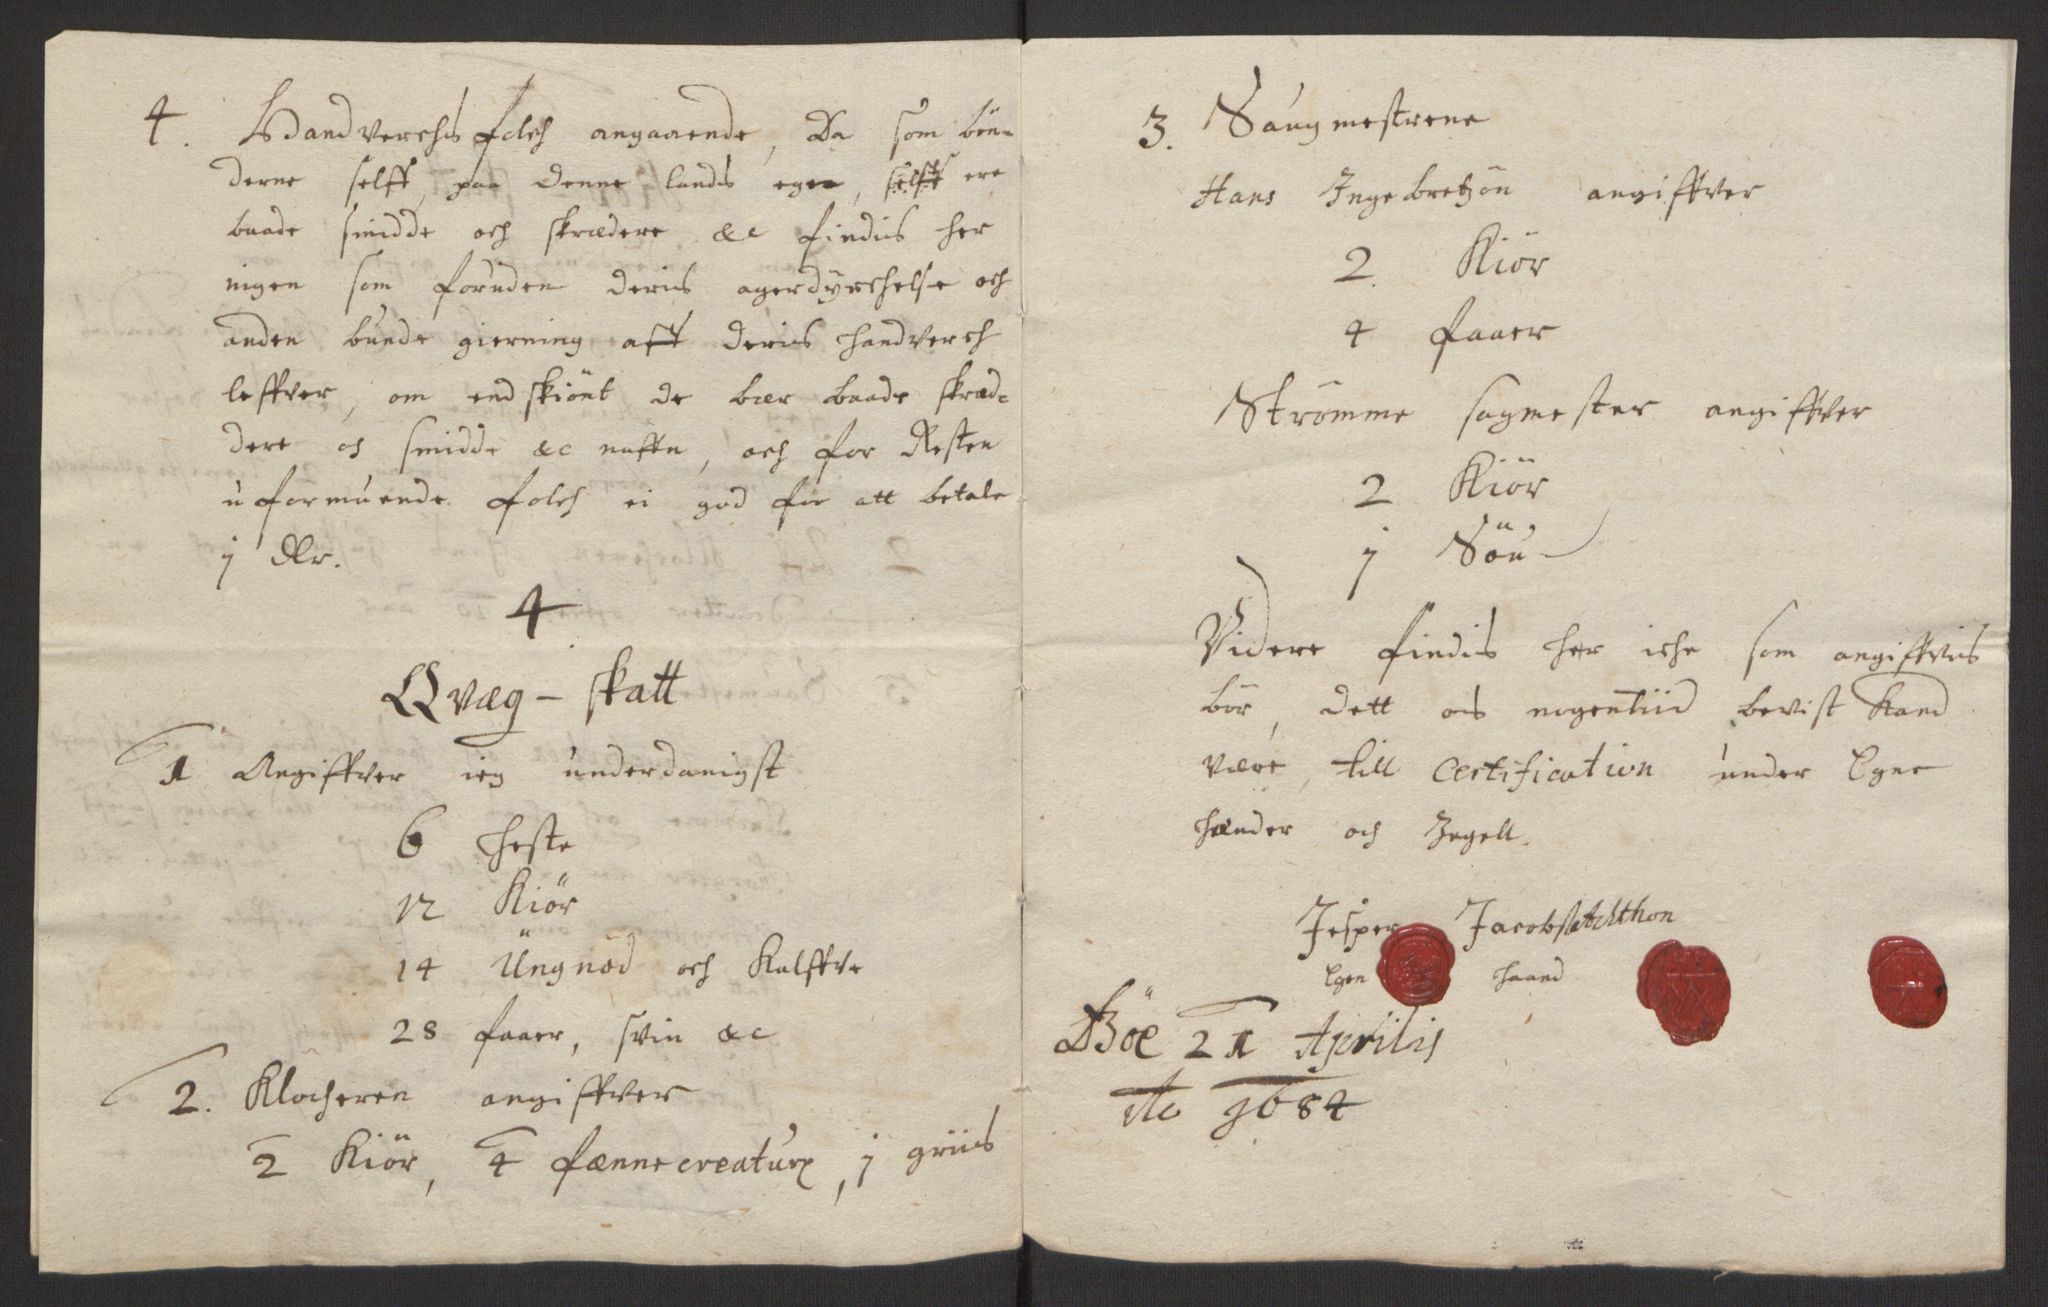 4. Handverchs folch angaaende, Da som bön-
derne selff, paa denne lands egen, selff ere
baade smidde och skrædere &c findis her
ingen som foruden deris agerdyrchelse och
anden bunde gierning aff deris handverch
leffver, om endskiönt de bær baade skræd-
dere oc smidde &c naffn, och for Resten
uformuende folch ei god for att betale
j Rdr.
4
Qvæg-skatt
1 Angiffver ieg underdanigst
6 heste
12 Kiör
14 Üngnöd och Kalffve
28 faaer, svin &c
2. Klocheren angiffver
2 Kiör, 4 fænnecreatury, j griis
3. Saugmestrene
Hans Ingebretzön angiffver
2. Kiör
4 faaer
Strömme sagmester angiffver
2 Kiör
j Söu
Videre findis her iche som angiffvis
bör, dett os nogentiid bevist kand
være, till certification under Egne
hænder och Zegell.
Jesper Jacobs Achthon
Egen haand
Böe 21 Aprilis
Ao 1684